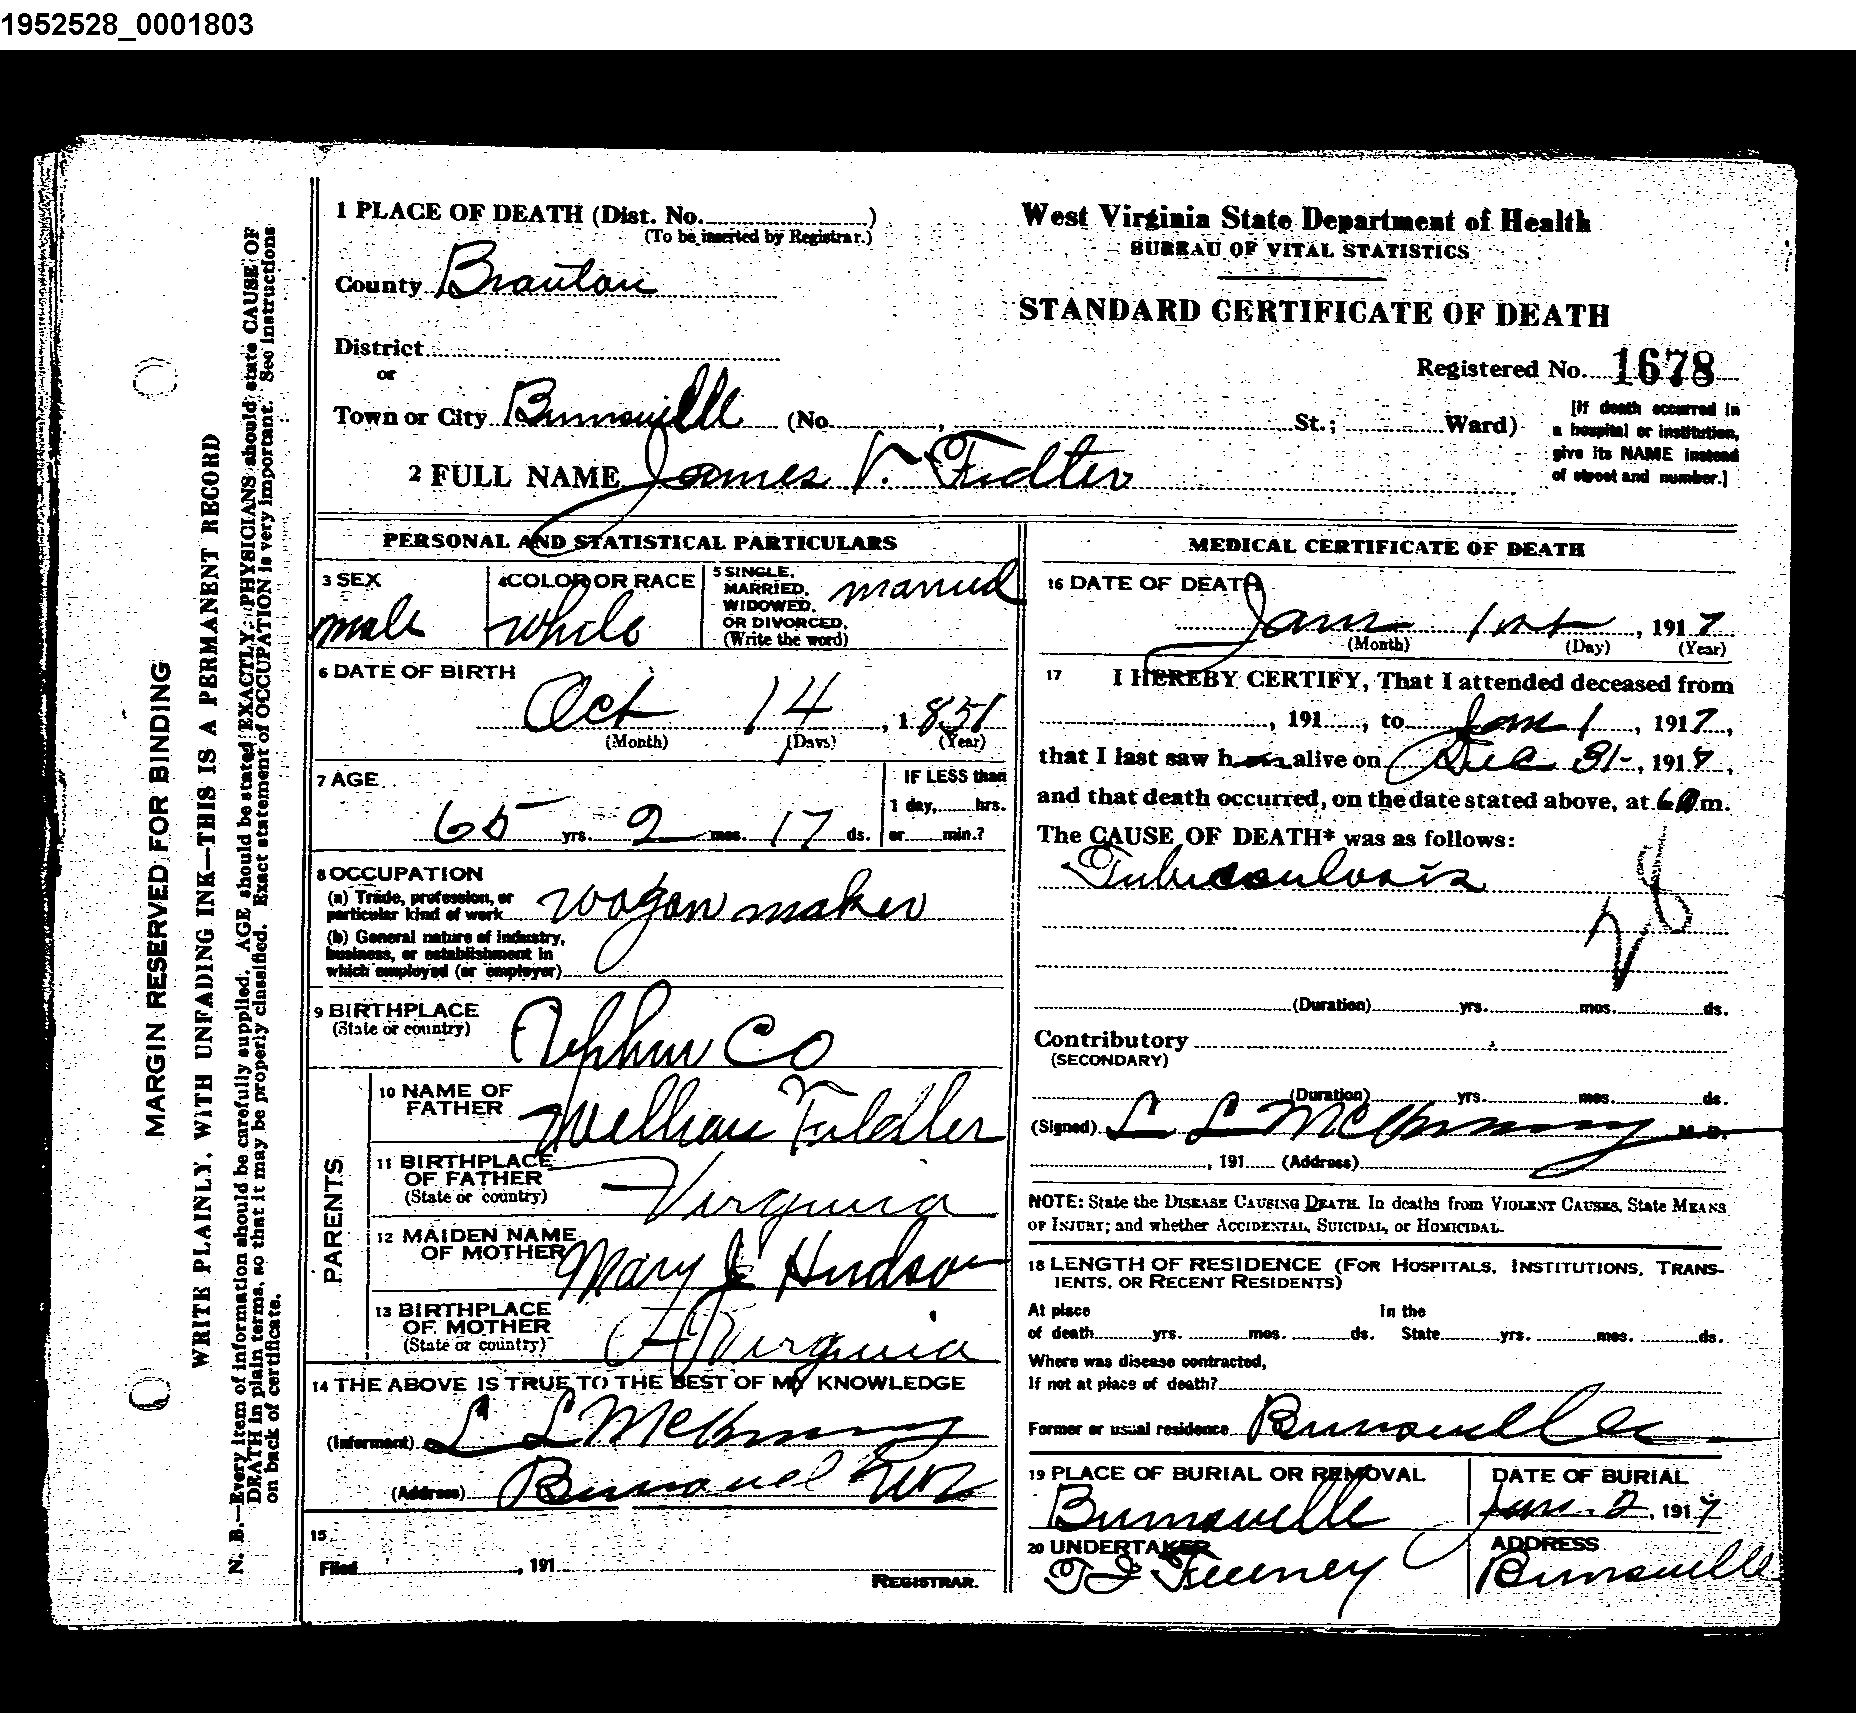 1952528_0001803
1 PLACE OF DEATH (Dist. No. )
(To be inserted by Registrar.)
County Braxton
District
or
Town or City Burnsville (No. , St.; Ward)
2 FULL NAME James V. Fidler
West Virginia State Department of Health
BUREAU OF VITAL STATISTICS
STANDARD CERTIFICATE OF DEATH
Registered No. 1678
[If death occurred in
a hospital or institution,
give its NAME instead
of street and number.]
PERSONAL AND STATISTICAL PARTICULARS
3 SEX
male
4 COLOR OR RACE
white
5 SINGLE,
MARRIED,
WIDOWED,
OR DIVORCED.
(Write the word)
married
6 DATE OF BIRTH
Oct 14, 1851
(Month) (Days) (Year)
7 AGE
65 yrs. 2 mos. 17 ds.
IF LESS than
1 day, hrs.
or min.?
8 OCCUPATION
(a) Trade, profession, or
particular kind of work wogan maker
(b) General nature of industry,
business, or establishment in
which employed (or employer)
9 BIRTHPLACE
(State or country)
Upshur Co
PARENTS
10 NAME OF
FATHER
William Fidler
11 BIRTHPLACE
OF FATHER
(State or country)
Virginia
12 MAIDEN NAME
OF MOTHER
Mary J Hudson
13 BIRTHPLACE
OF MOTHER
(State or country)
Virginia
14 THE ABOVE IS TRUE TO THE BEST OF MY KNOWLEDGE
(Informant) L L McKinney
(Address)
15
Filed , 191
REGISTRAR.
MEDICAL CERTIFICATE OF DEATH
16 DATE OF DEATH
Jan 1st, 1917
(Month) (Day) (Year)
17 I HEREBY CERTIFY, That I attended deceased from
, 191 , to Jan 1, 1917,
that I last saw him alive on Dec 31-, 191 ,
and that death occurred, on the date stated above, at 6 m.
The CAUSE OF DEATH* was as follows:
Tuberculosis
(Duration) yrs. mos. ds.
Contributory
(SECONDARY)
(Duration) yrs. mos. ds.
(Signed) L L McKinney M.D.
, 191 (Address)
NOTE: State the DISEASE CAUSING DEATH. In deaths from VIOLENT CAUSES, State MEANS
OF INJURY; and whether ACCIDENTAL, SUICIDAL, or HOMICIDAL.
18 LENGTH OF RESIDENCE (FOR HOSPITALS, INSTITUTIONS, TRANS-
IENTS, OR RECENT RESIDENTS)
At place In the
of death yrs. mos. ds. State yrs. mos. ds.
Where was disease contracted,
If not at place of death?
Former or usual residence Burnsville
19 PLACE OF BURIAL OR REMOVAL
Burnsville
DATE OF BURIAL
Jan. 2, 1917
20 UNDERTAKER
Feeney
ADDRESS
Burnsville
MARGIN RESERVED FOR BINDING
WRITE PLAINLY, WITH UNFADING INK—THIS IS A PERMANENT RECORD
N. B.—Every item of information should be carefully supplied. AGE should be stated EXACTLY. PHYSICIANS should state CAUSE OF
DEATH in plain terms, so that it may be properly classified. Exact statement of OCCUPATION is very important. See instructions
on back of certificate.